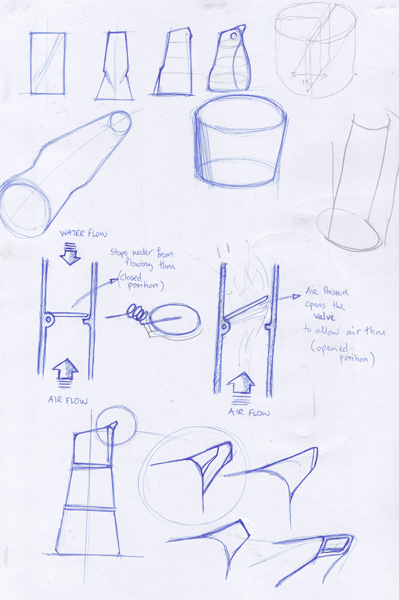 WATER FLOW
Stops water from
flowing thru
(closed
position)
AIR PRESSURE
opens the
valve
to allow air thru
(opened-
position)
AIR FLOW
AIR FLOW